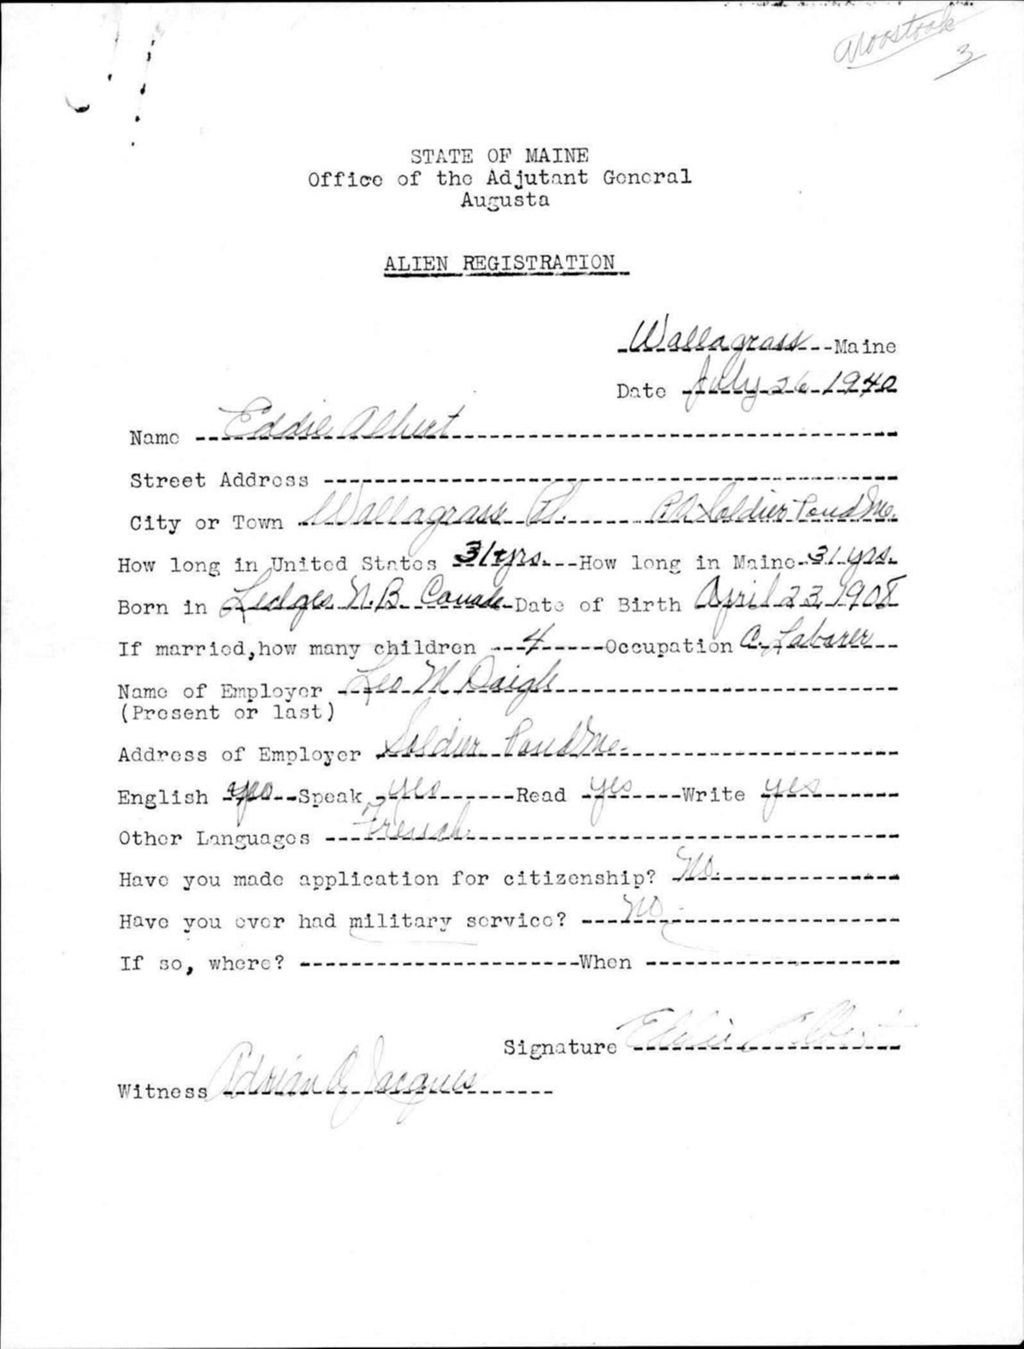 Aroostook
3
STATE OF MAINE
Office of the Adjutant General
Augusta
ALIEN REGISTRATION
Wallagrass Maine
Date July 26 1940
Name Eddie Albert
Street Address
City or Town Wallagrass Pl. P.O. Soldier Pond Me.
How long in United States 31 yrs. How long in Maine 31 yrs.
Born in Ledges N.B. Canada Date of Birth April 23, 1908
If married, how many children 4 Occupation C. Laborer
Name of Employer Leo M Daigle
(Present or last)
Address of Employer Soldier Pond Me.
English yes Speak yes Read yes Write yes
Other Languages French
Have you made application for citizenship? No.
Have you ever had military service? No
If so, where? When
Signature Eddie Albert
Witness Adrian O. Jacques